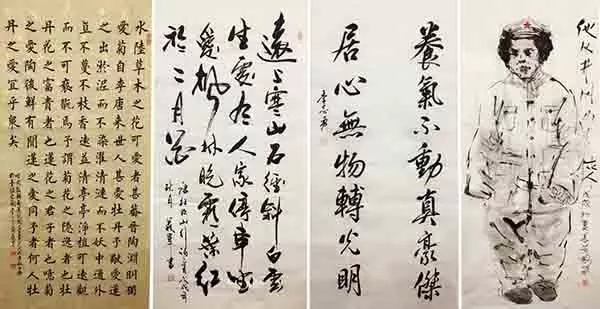 水陸草木之花可愛者甚蕃晉陶淵明獨
愛菊自李唐来世人甚愛牡丹予獨愛蓮
之出淤泥而不染濯清漣而不妖中通外
直不蔓不枝香遠益清亭亭淨植可遠觀
而不可褻翫焉予謂菊花之隱逸者也牡
丹花之富貴者也蓮花之君子者也噫菊
之愛陶後鮮有聞蓮之愛同予者何人牡
丹之愛宜乎衆矣
遠上寒山石徑斜白雲
生處有人家停車坐
愛楓林晚霜葉紅
於二月花
養氣不動真豪傑
居心無物轉光明
他从井